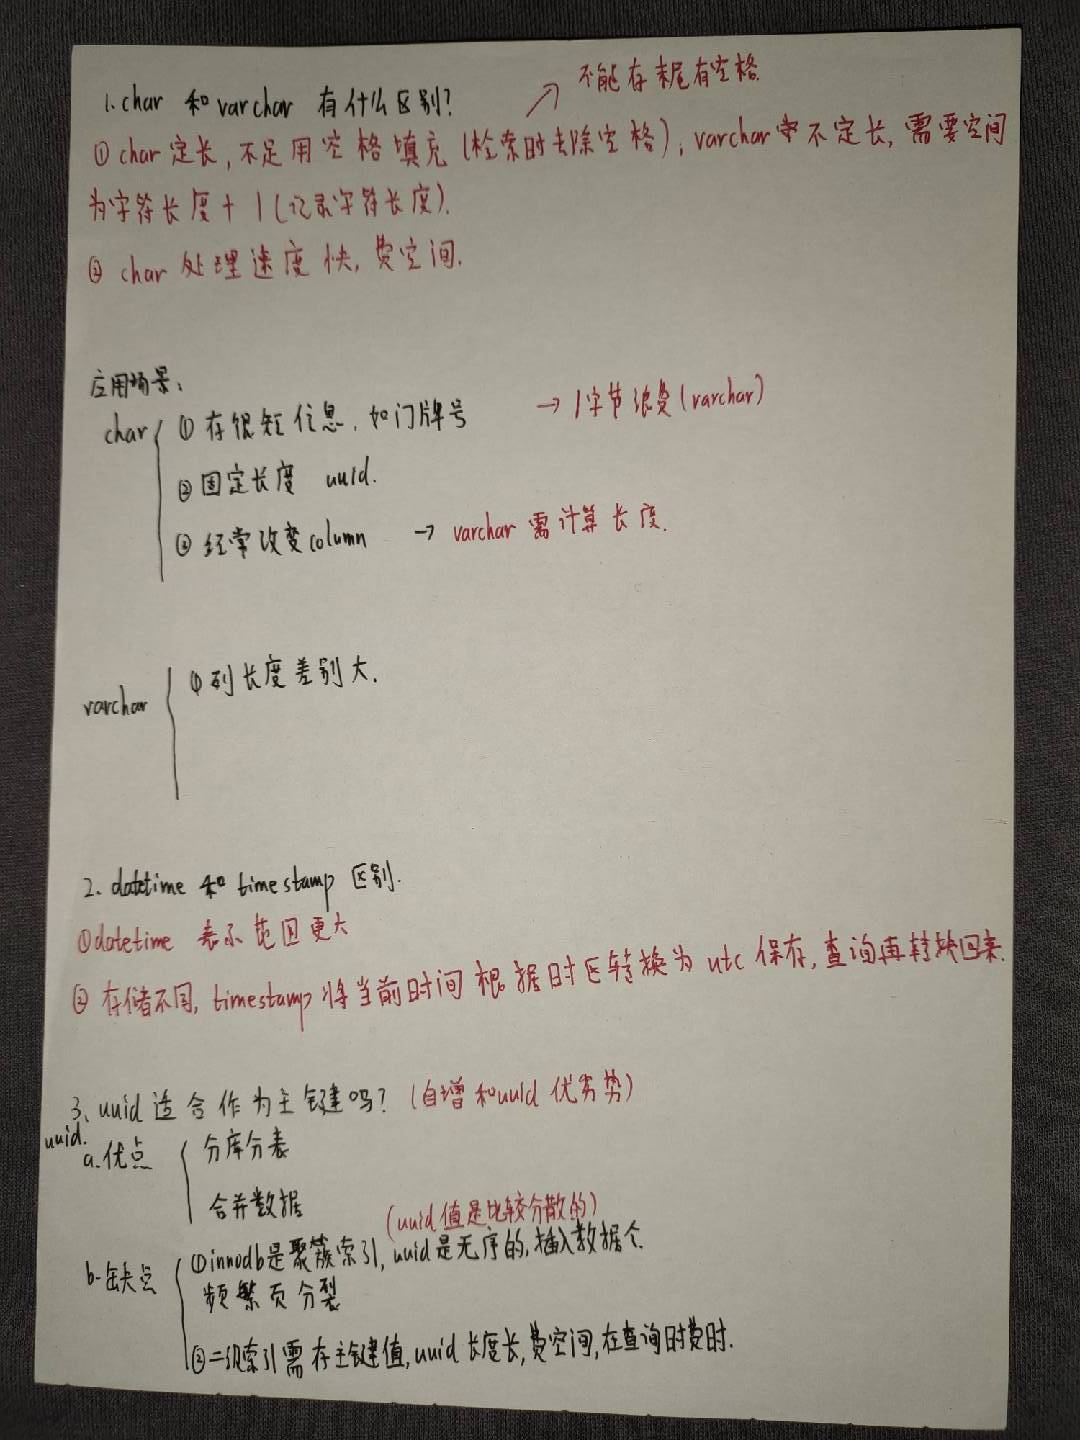 1. char 和 varchar 有什么区别?
↗ 不能存末尾有空格.
① char 定长, 不足用空格填充 (检索时去除空格); varchar 不定长, 需要空间
为字符长度 + 1 (记录字符长度).
② char 处理速度快, 费空间.
应用场景:
char
① 存很短信息, 如门牌号 → 1字节浪费 (varchar)
② 固定长度 uuid.
③ 经常改变column → varchar 需计算长度.
varchar
① 列长度差别大.
2. datetime 和 timestamp 区别.
① datetime 表示范围更大
② 存储不同, timestamp 将当前时间根据时区转换为 utc 保存, 查询再转换回来.
3. uuid 适合作为主键吗? (自增和uuid 优劣势)
uuid.
a. 优点
分库分表
合并数据
(uuid值是比较分散的)
b. 缺点
① innodb是聚簇索引, uuid是无序的, 插入数据会
频繁页分裂
② 二级索引需存主键值, uuid 长度长, 费空间, 在查询时费时.